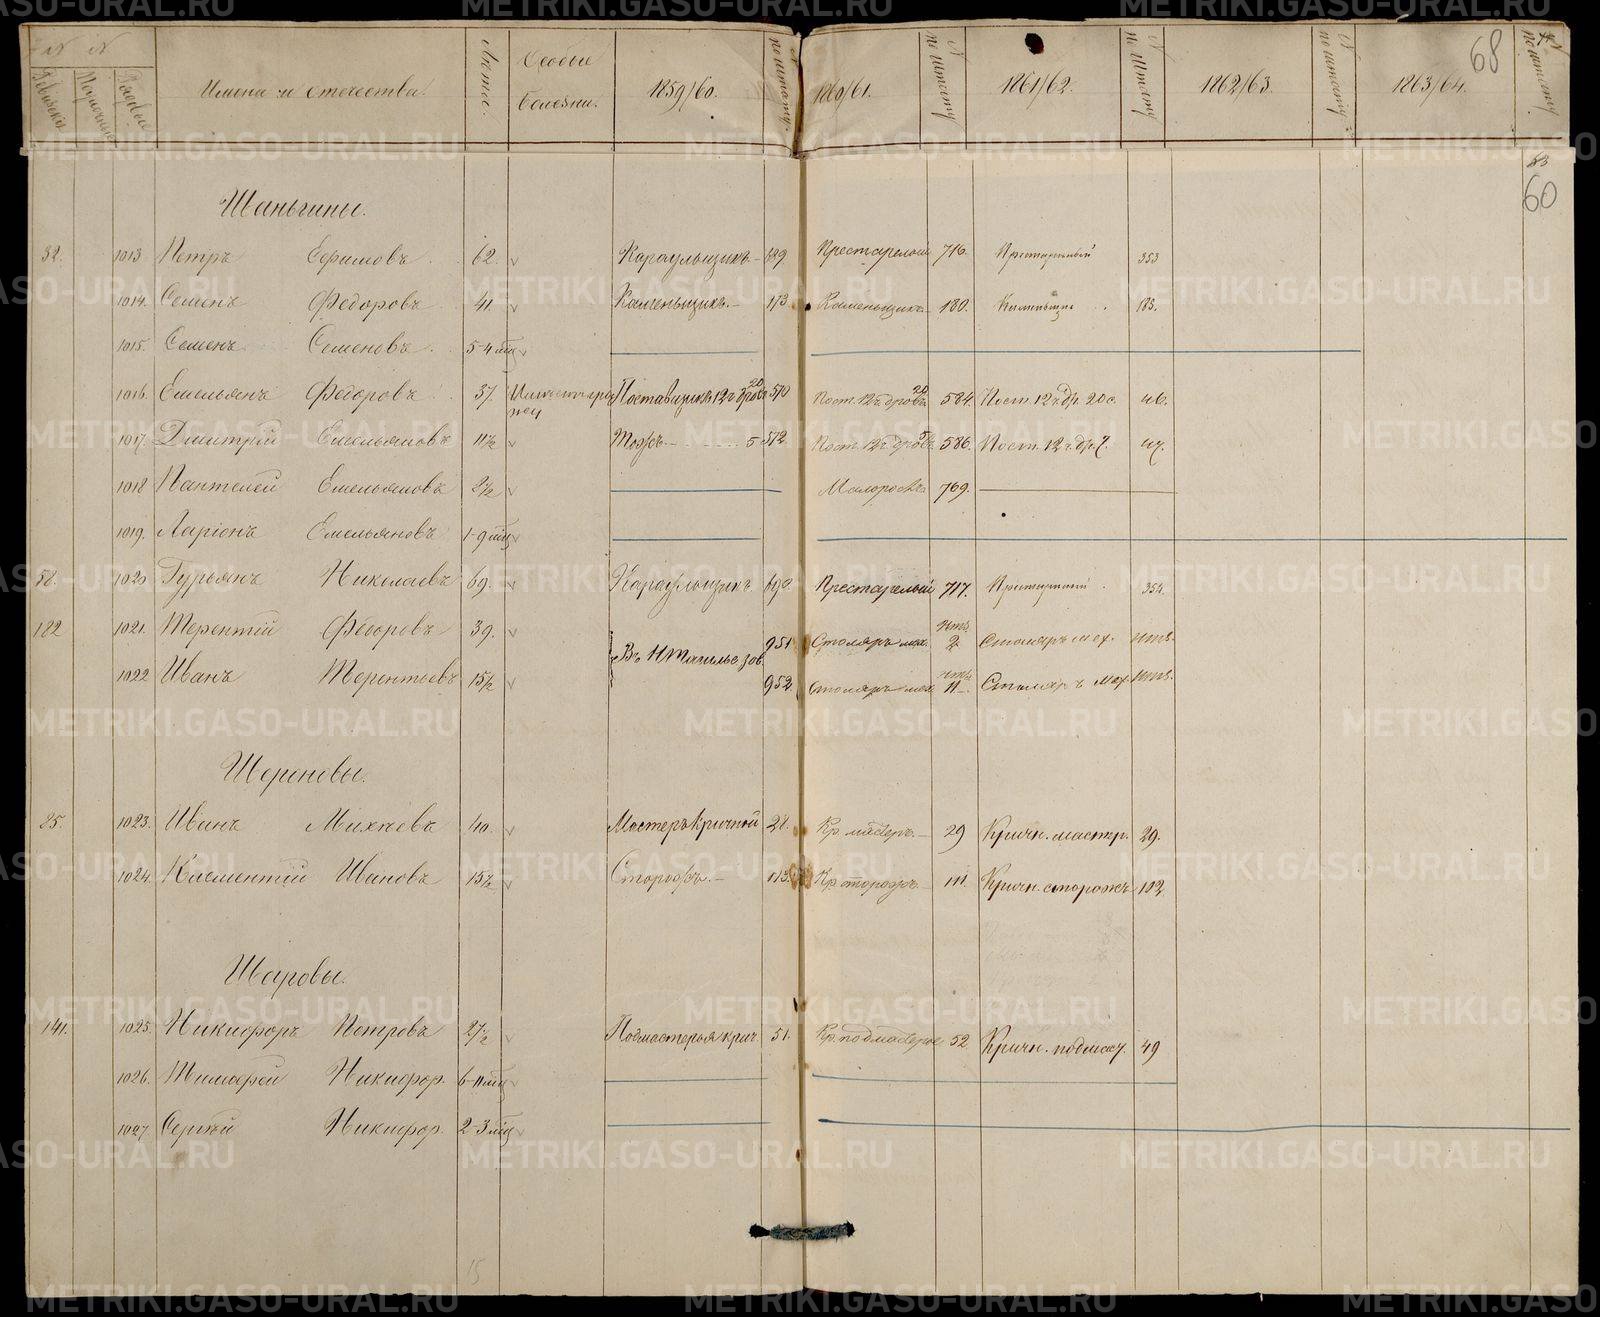 № №
Ревизскіе Порядочные Родовые Имена и отечества. Лета. Особыя болезни. 1859/60. № по штату. 1860/61. № по штату 1861/62. № по штату 1862/63. № по штату 1863/64. № по штату
68
60
Шаньгины.
32. 1013 Петръ Ефимовъ 62. Караульщикъ 689 Престарелый 716. Престарелый 353
1014. Семенъ Федоровъ 41. Каменьщикъ. 173 Каменьщикъ 180. Каменьщикъ 183.
1015. Семенъ Семеновъ 5-4 мѣс
1016. Емельянъ Федоровъ 37. Поставщикъ 12 ч дровъ 20 570 Пост. 12 ч дровъ 20 584. Пост. 12 ч. др. 20 с. 46.
1017. Дмитрій Емельяновъ 11½ Тожъ 5 572. Пост. 12 ч дровъ 5 586. Пост. 12 ч. др. 7. 47.
1018 Пантелей Емельяновъ 2½ Малоросъ 769.
1019. Ларіонъ Емельяновъ 1-9 мѣс
58. 1020 Гурьянъ Николаевъ 69. Караульщикъ 690. Престарелый 717. Престарелый 354.
182 1021. Терентій Федоровъ 39. Въ Н Тагильс зав. 951 Столяръ мех. 2. Столяръ мех.
1022 Иванъ Терентьевъ 15½ 952. Столяръ мех. 11 Столяръ мех.
Шероновы.
85. 1023. Иванъ Михѣевъ 40. Мастеръ Кричной 28. Кр мастеръ 29 Кричн. мастр. 29.
1024. Клементій Ивановъ 15½ Сторожъ. 113. Кр сторожъ 111. Кричн. сторожъ 102.
Шаровы.
141. 1025. Никифоръ Петровъ 27½ Подмастерья крич. 51. Кр. подмастерье 52. Кричн. подмаст. 49
1026. Тимофей Никифор. 6-11 мѣс
1027. Сергѣй Никифор. 2-3 мѣс
15
METRIKI.GASO-URAL.RU